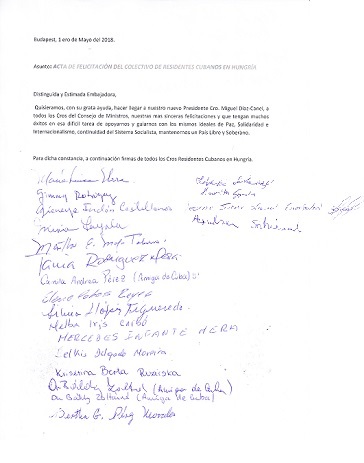 Budapest, 1 ero de Mayo del 2018.
Asunto: ACTA DE FELICITACIÓN DEL COLECTIVO DE RESIDENTES CUBANOS EN HUNGRÍA
Distinguida y Estimada Embajadora,
Quisieramos, con su grata ayuda, hacer llegar a nuestro nuevo Presidente Cro. Miguel Díaz-Canel, a
todos los Cros del Consejo de Ministros, nuestras mas sinceras felicitaciones y que tengan muchos
éxitos en esa difícil tarea de apoyarnos y guiarnos con los mismos ideales de Paz, Solidaridad e
Internacionalismo, continuidad del Sistema Socialista, mantenernos un País Libre y Soberano.
Para dicha constancia, a continuación firmas de todos los Cros Residentes Cubanos en Hungría.
Rodriguez
Castellanos
Loyola
Martha E.
Tania Rodriguez
Carola Andrea Perez (Amiga de Cuba)
Silvia López Figueredo
Melba Iris
MERCEDES INFANTE NERA
Delgado
Krisztina Berta Ruzsiska
Zoltánné (Amiga de Cuba)
Bertha G. Pérez